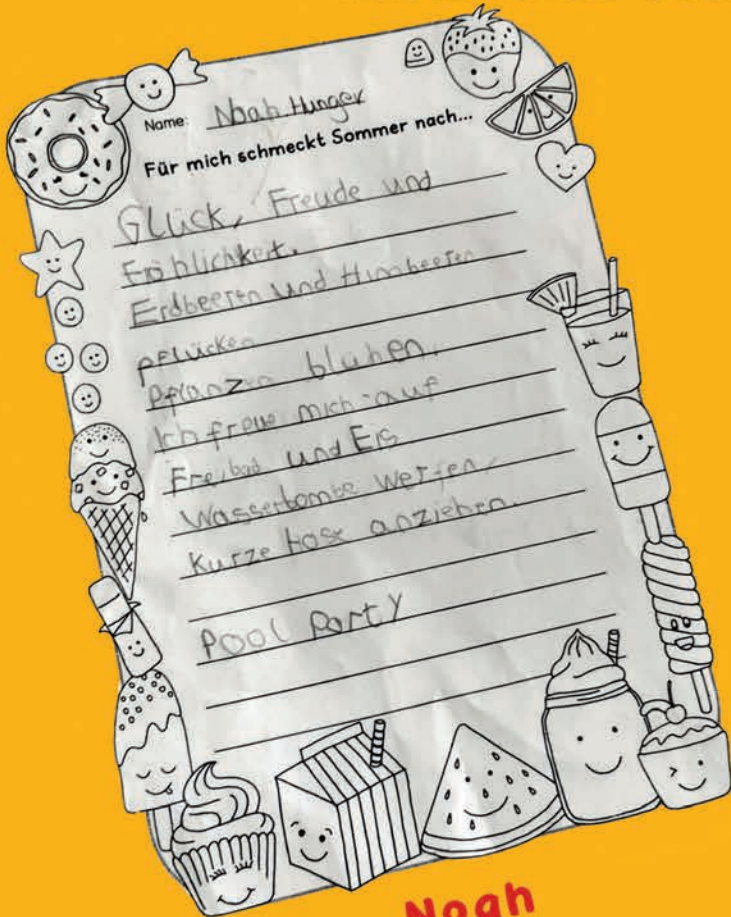 Name: Noah Hunger
Für mich schmeckt Sommer nach...
Glück, Freude und
Fröhlichkeit.
Erdbeeren und Himbeeren
pflücken
Pflanzen blühen.
Ich freue mich auf
Freibad und Eis
Wasserbombe werfen,
Kurze Hose anziehen.
Pool Party
Noah